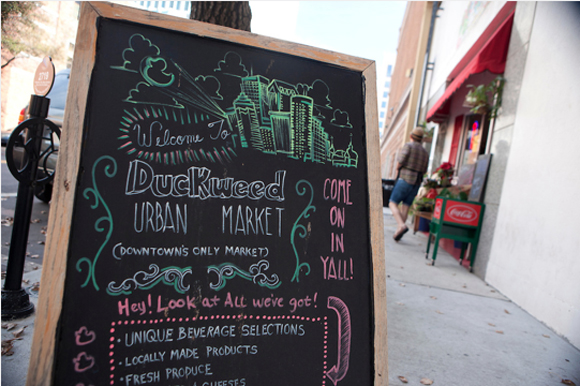 Welcome To
DucKweed
URBAN MARKET
(DOWNTOWN'S ONLY MARKET)
COME
ON
IN
Y'ALL!
Hey! Look at All we've got!
· UNIQUE BEVERAGE SELECTIONS
· LOCALLY MADE PRODUCTS
· FRESH PRODUCE
CHEESES
Coca-Cola